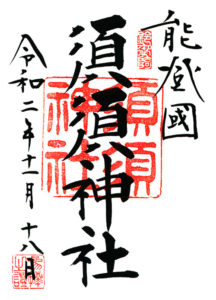 能登國
須須神社
須須
神社
令和二年十一月十八日